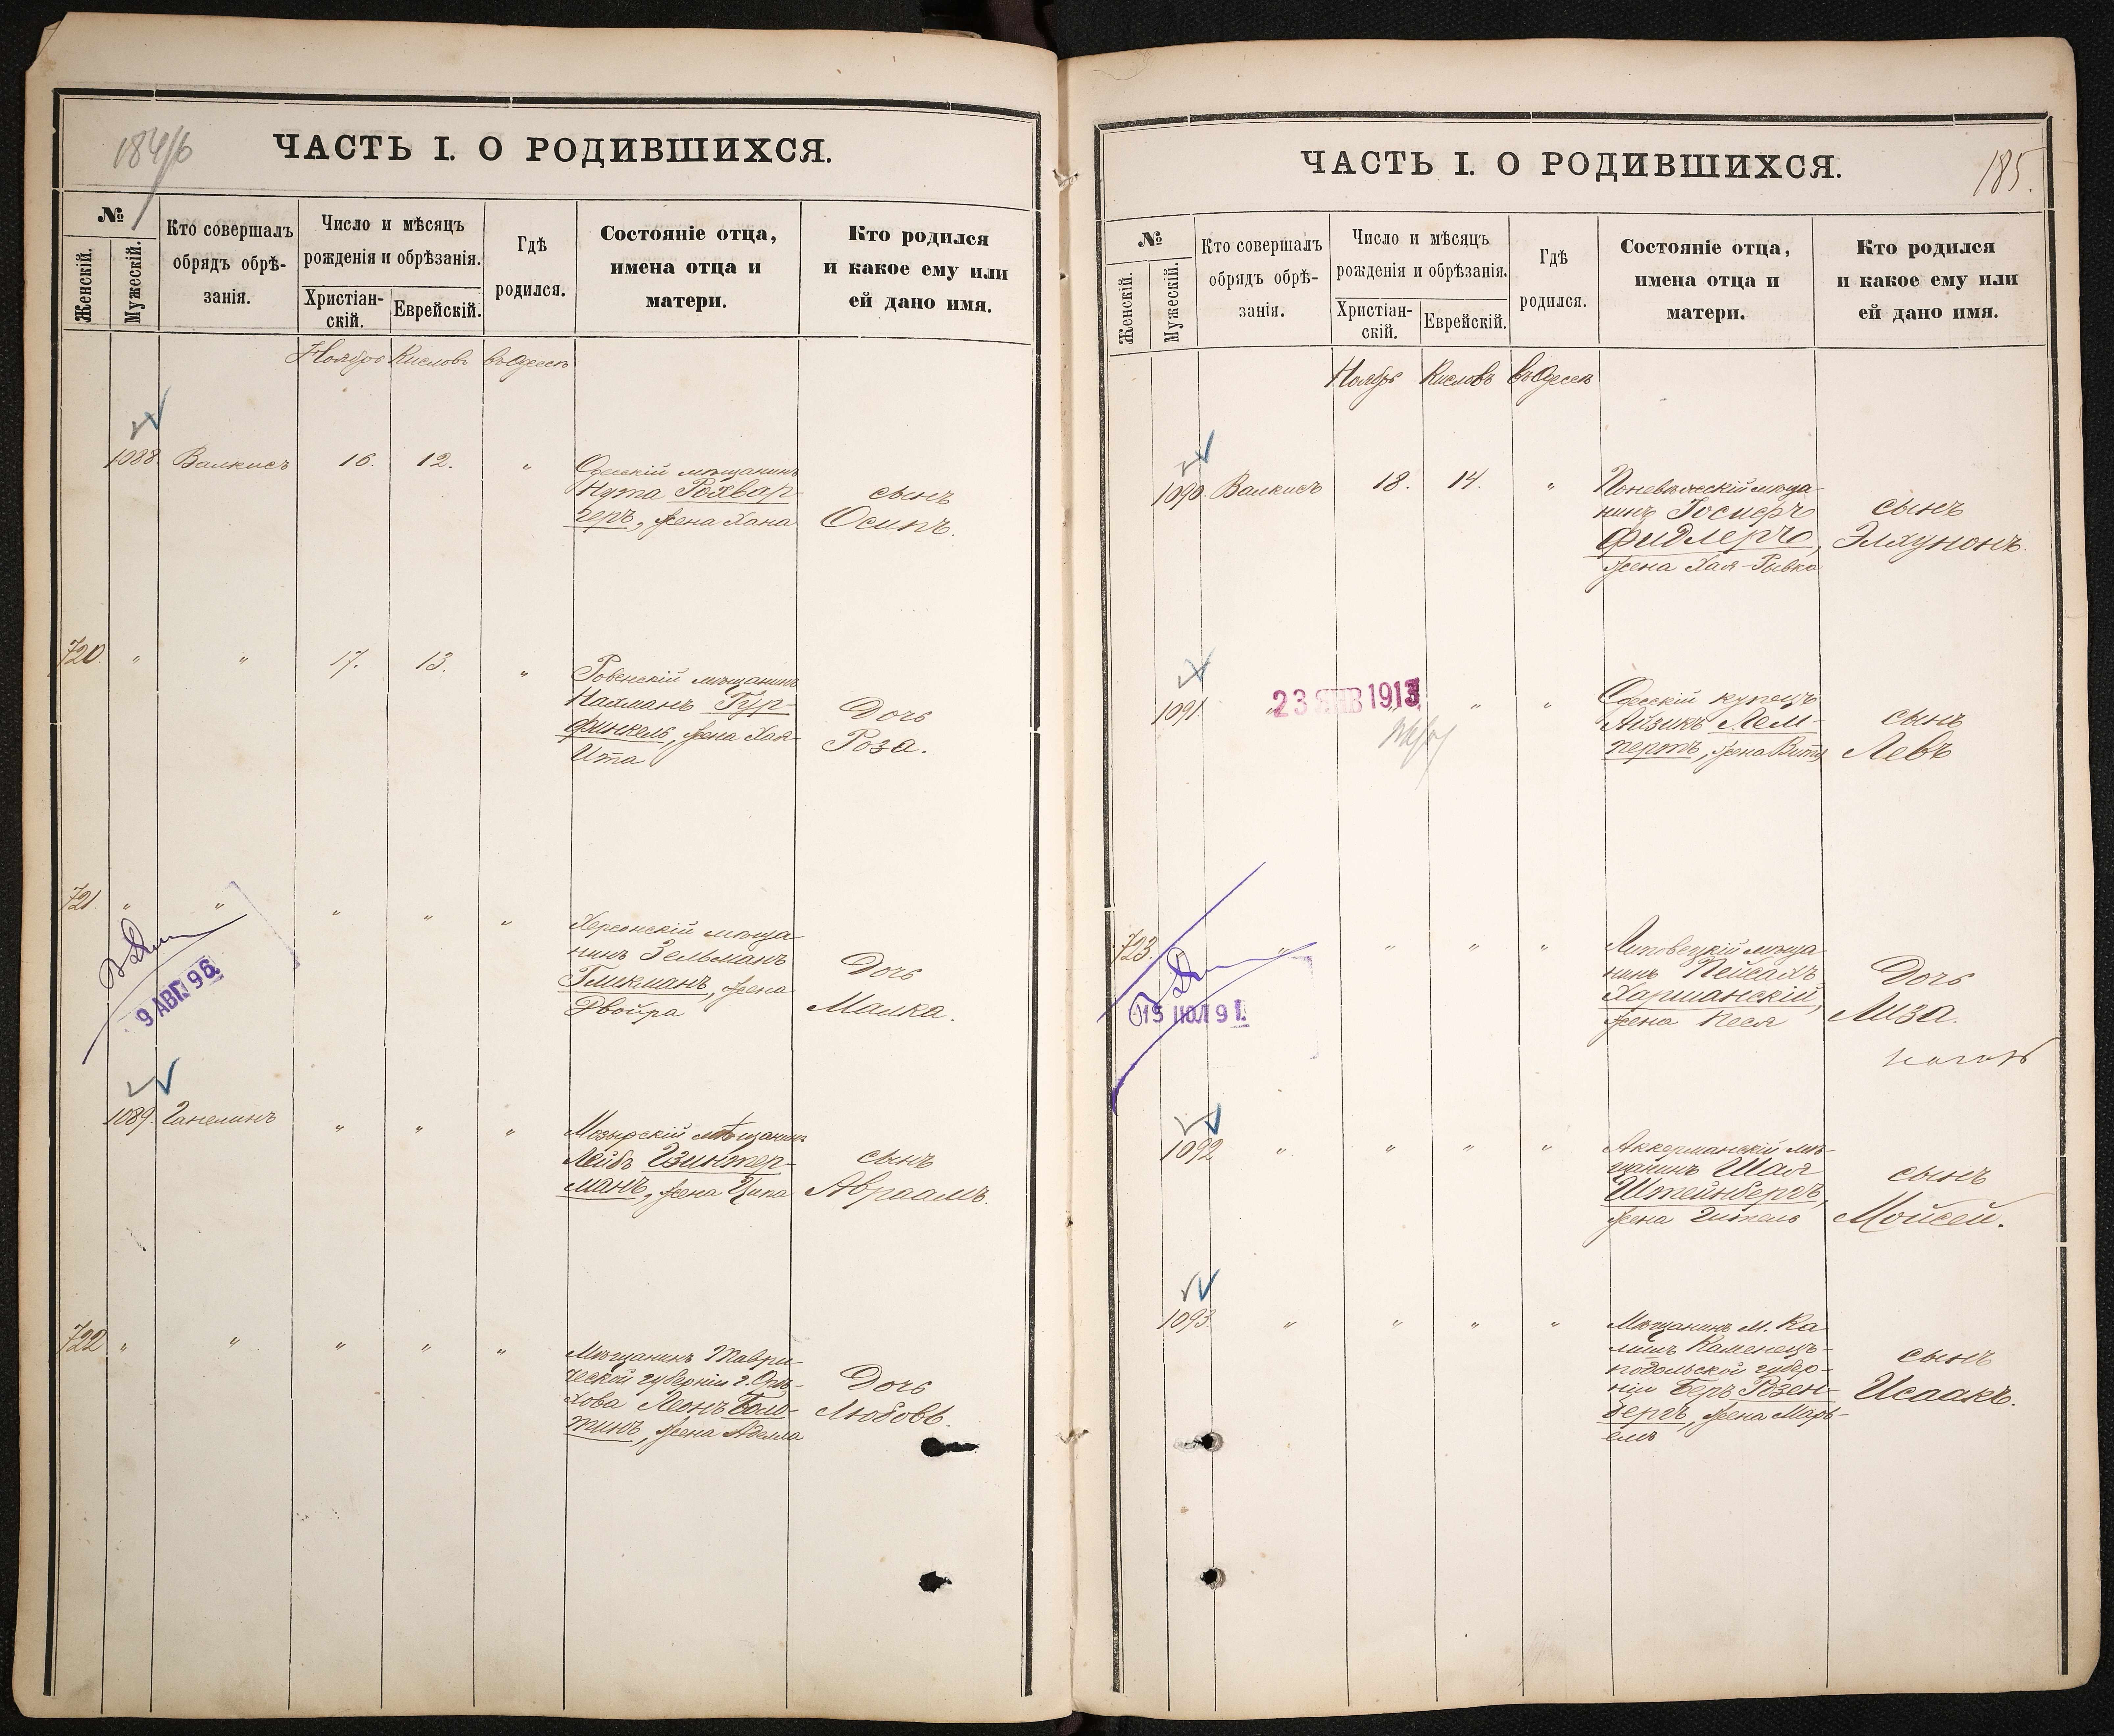 184/б
ЧАСТЬ I. О РОДИВШИХСЯ.
№
Женскій.
Мужескій.
Кто совершалъ
обрядъ обрѣ-
занія.
Число и мѣсяцъ
рожденія и обрѣзанія.
Христіан-
скій.
Еврейскій.
Гдѣ
родился.
Состояніе отца,
имена отца и
матери.
Кто родился
и какое ему или
ей дано имя.
Ноябрь Кисловъ въ Одессѣ
1088. Валкисъ 16. 12. "
Одесскій мѣщанинъ
Нута Рохвар-
геръ, жена Хана
сынъ
Осипъ.
720. " " 17. 13. "
Ровенскій мѣщанинъ
Нахманъ Гур-
финкель, жена Хая-
Ита
Дочь
Роза.
721. " " " " "
Херсонскій мѣща-
нинъ Зельманъ
Гликманъ, жена
Двойра
Дочь
Малка.
9 АВГ 96.
1089. Ганелинъ " " "
Мозырскій мѣщанинъ
Лейбъ Цвинтер-
манъ, жена Ципа
сынъ
Авраамъ.
722 " " " " "
Мѣщанинъ Таври-
ческой губерніи г. Орѣ-
хова Леонъ Боло-
тинъ, жена Аделла
Дочь
Любовь.
ЧАСТЬ I. О РОДИВШИХСЯ.
185.
№
Женскій.
Мужескій.
Кто совершалъ
обрядъ обрѣ-
занія.
Число и мѣсяцъ
рожденія и обрѣзанія.
Христіан-
скій.
Еврейскій.
Гдѣ
родился.
Состояніе отца,
имена отца и
матери.
Кто родился
и какое ему или
ей дано имя.
Ноябрь Кисловъ въ Одессѣ
1090. Валкисъ 18. 14. "
Поневѣжскій мѣща-
нинъ Іосифъ
Фидлеръ,
жена Хая-Рывка
сынъ
Элхунонъ.
1091 " " " "
23 ЯНВ 1913
Одесскій купецъ
Айзикъ Лем-
пертъ, жена Витя
сынъ
Левъ
723. " " " "
Липовецкій мѣща-
нинъ Пейсахъ
Харшанскій,
жена Песя
Дочь
Лиза.
15 ІЮЛ 91.
1092 " " " "
Аккерманскій мѣ-
щанинъ Шая
Штейнбергъ,
жена Гитель
сынъ
Мойсей.
1093. " " " "
Мѣщанинъ м. Ка-
лишъ Каменецъ-
подольской губер-
ніи Беръ Розен-
бергъ, жена Марь-
емъ
сынъ
Исаакъ.